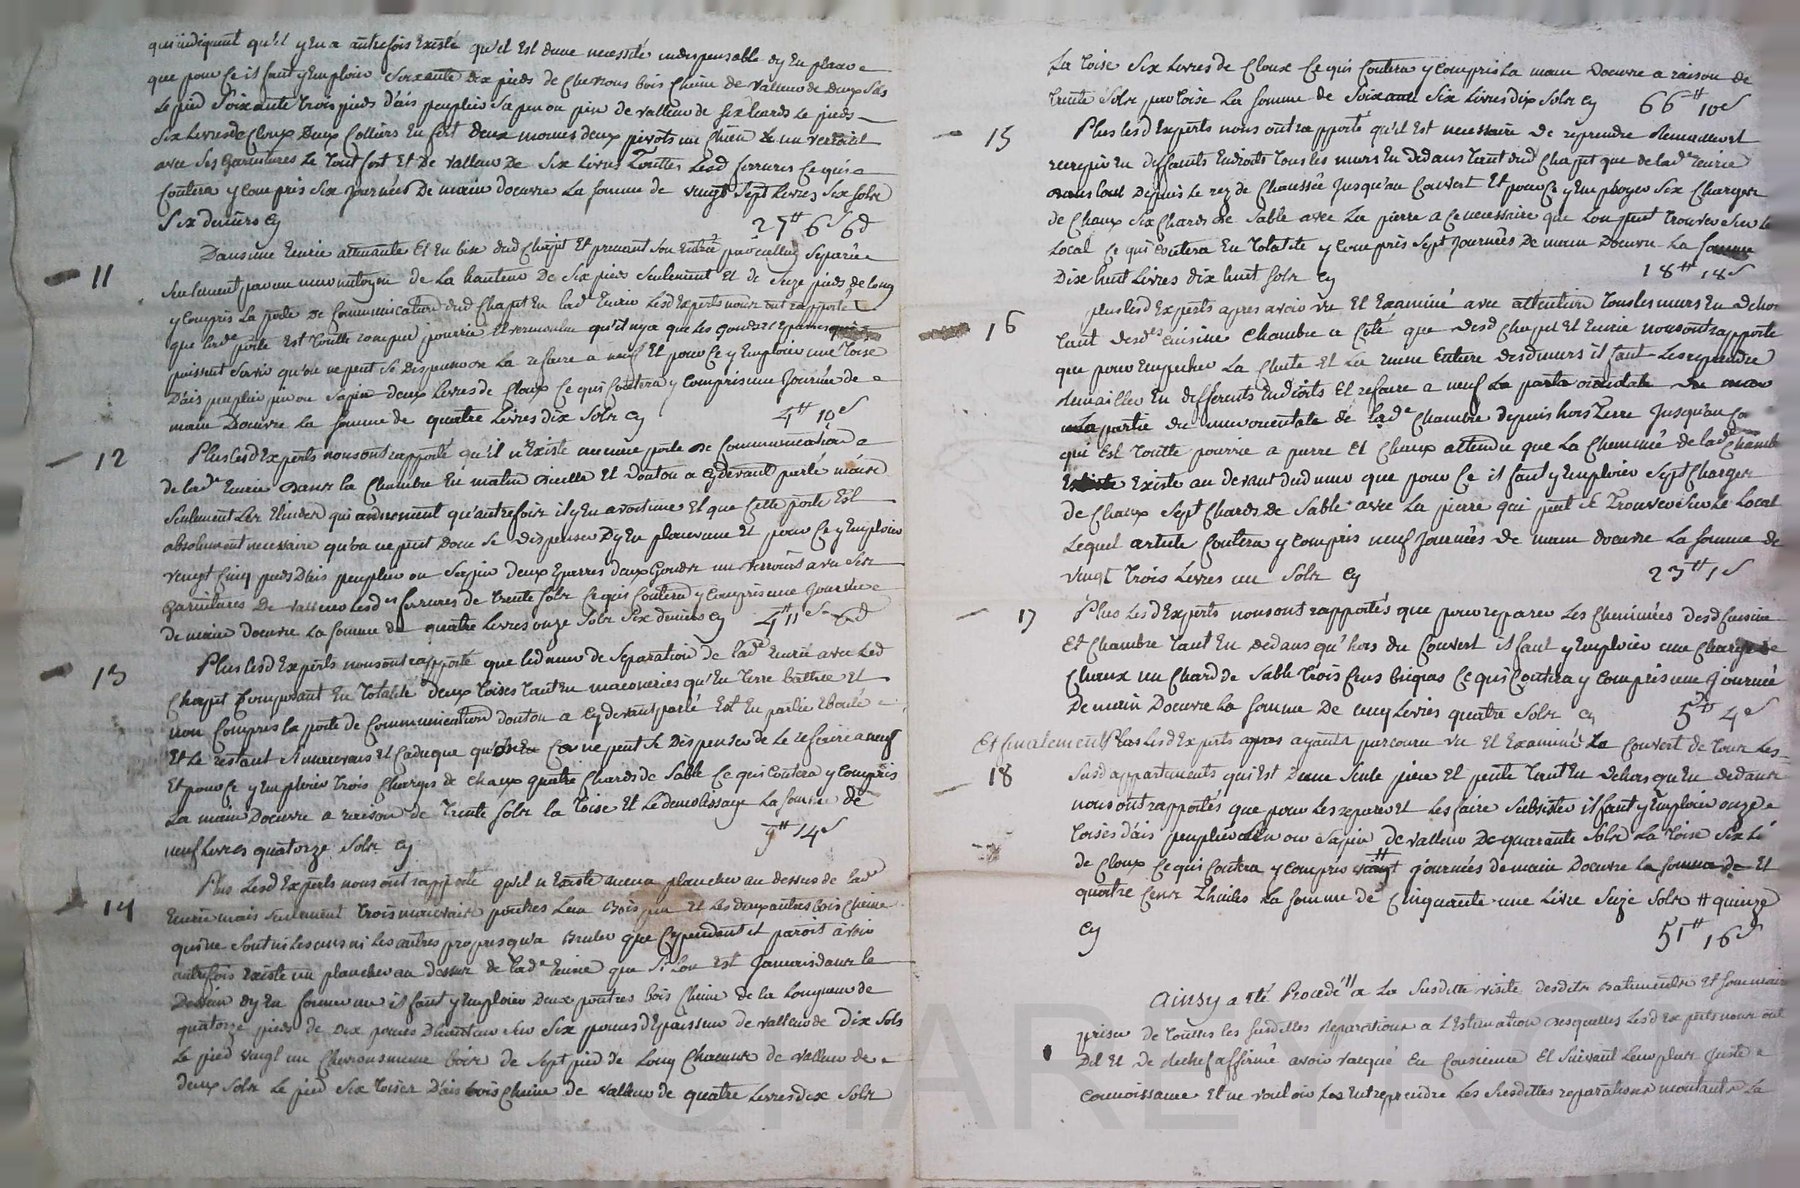 qui indiquent qu'il y en a autrefois Existé qu'il Est d'une necessité indispensable dy En placer
que pour Ce il faut y Emploier Soixante dix pieds de Chevrons bois Chêne de valleur de deux Sols
Le pied Soixante trois pieds d'ais peuplier Sapin ou pin de valleur de six liards Le pied
Six Livres de Cloux Deux Colliers En fert deux mornes deux pivots un Chien & un verrouil
avec Ses garnitures Le tout fort Et De valleur De Six Livres Touttes Lesd ferrures Ce qui
Coutera y Compris Six Journées De main doeuvre La somme de vingt Sept Livres Six Sols
Six deniers Cy 27# 6s 6d
11 Dans une Ecurie attenante Et En bise dud Chapit Et prenant Son Entrée par celluy Separée
Seulement par un mur mitoyen de La hauteur De Six pieds Seulement Et de Seize pieds de Long
y Compris La porte de Communication dud Chapit En lade Ecurie Lesd Experts nous ont rapporté
que lade porte Est toutte rompue pourrie Et vermoulue qu'il n'y a que Les gonds Et Eparres qui
puissent Servir qu'on ne peut Se dispenser de La refaire a neuf Et pour Ce y Emploier une toise
D'ais peuplier pin ou Sapin deux Livres de Cloux Ce qui Coutera y Compris une Journée de
main Doeuvre La Somme de quatre Livres dix Sols Cy 4# 10s
12 Plus lesd Experts nous ont rapporté qu'il n'Existe aucune porte de Communication
de lade Ecurie Dans la Chambre En matin d'icelle Et dont on a Cy devant parlé
Seulement Les qu'autrefois il y En avoit une Et que Cette porte Est
absolument necessaire qu'on ne peut Donc Se dispenser D'y En placer une Et pour Ce y Emploier
vingt Cinq pieds D'ais peuplier ou Sapin deux Eparres deux Gonds un verrouil avec Ses
garnitures De valleur Lesdes ferrures de trente Sols Ce qui Coutera y Compris une Journée
de main doeuvre La Somme de quatre Livres onze Sols Six deniers Cy 4# 11s 6d
13 Plus lesd Experts nous ont rapporté que led mur de Separation de lade Ecurie avec Led
Chapit Composant En Totalité deux toises tant En maconneries qu'En Terre battue Et
non Compris la porte de Communication dont on a Cy devant parlé Est En partie Eboulé
Et Le restant Si mauvais Et Caduque qu'on ne peut Se dispenser de Le refaire a neuf
Et pour Ce y Emploier trois Charges de Chaux quatre Chards de Sable Ce qui Coutera y Compris
La main Doeuvre a raison de trente Sols la toise Et Le demolissage La Somme de
neuf Livres quatorze Sols Cy 9# 14s
14 Plus Lesd Experts nous ont rapporté qu'il n'Existe aucun plancher au dessus de lade
Ecurie mais Seulement trois mauvaises poutres L'un Bois pin Et Les deux autres bois Chêne
qui ne Sont ni Les uns ni Les autres propres qu'a Bruler que Cependant il paroit avoir
autrefois Existé un plancher au dessus de lade Ecurie que Si Lon Est Jamais dans le
Dessein dy En former un il faut y Emploier Deux poutres bois Chêne de la Longueur de
quatorze pieds de Dix pouces D'hauteur Sur Six pouces d'Epaisseur de valleur de Dix Sols
Le pied vingt un Chevrons meme bois de Sept pied de Long Chacun de valleur de
deux Sols Le pied Six toises D'ais bois Chêne de valleur de quatre Livres dix Sols
La toise Six Livres de Cloux Ce qui Coutera y Compris La main Doeuvre a raison de
trente Sols par toise La Somme de Soixante Six Livres dix Sols Cy 66# 10s
15 Plus lesd Experts nous ont rapporté qu'il Est necessaire De reprendre Remailler Et
recrepir En differents Endroits tous les murs En dedans tant dud Chapit que de lade Ecurie
Depuis le rez de Chaussée Jusqu'au Couvert Et pour Ce y Employer Six Charges
de Chaux Six Chards de Sable avec La pierre a Ce necessaire que Lon peut trouver Sur le
Local Ce qui Coutera En Totalité y Compris Sept Journées De main Doeuvre La Somme
Dix huit Livres dix huit Sols Cy 18# 18s
16 plus lesd Experts apres avoir vu Et Examiné avec attention tous les murs En dehors
tant desdes Cuisine Chambre a Coté que dud Chapit Et Ecurie nous ont rapporté
que pour Empecher La Chute Et La ruine Entiere desd murs il faut Les reprendre
Remailler En differents Endroits Et refaire a neuf
La partie du mur orientale de lade Chambre depuis hors Terre Jusqu'au
qui Est toutte pourrie a pierre Et Chaux attendu que La Cheminée de lade Chambre
Existe au devant dud mur que pour Ce il faut y Emploier Sept Charges
de Chaux Sept Chards de Sable avec La pierre qui peut Se trouver Sur Le Local
Lequel article Coutera y Compris neuf Journées de main doeuvre La Somme de
vingt trois Livres un Sols Cy 23# 1s
17 Plus Lesd Experts nous ont rapportés que pour reparer Les Cheminées desd Cuisine
Et Chambre tant En dedans qu'hors du Couvert il faut y Emploier une Charge de
Chaux un Chard de Sable trois Cens briques Ce qui Coutera y Compris une Journée
De main Doeuvre La Somme De Cinq Livres quatre Sols Cy 5# 4s
Et finalement Plus Lesd Experts apres ayants parcouru vu Et Examiné Le Couvert de tous Les
18 Susd appartements qui Est d'une Seule piece Et pente tant En dehors qu'En dedans
nous ont rapportés que pour Les reparer Et Les faire Subsister il faut y Emploier onze
toises d'ais peuplier ou Sapin de valleur De quarante Sols La toise Six Li
de Cloux Ce qui Coutera y Compris vingt # Journées de main Doeuvre Et
quatre Cens Thuiles La Somme de Cinquante une Livre Seize Sols # quinze
Cy 51# 16s
Ainsy a Eté Procedé a La Susditte visite desdits Batiments Et Sommaire
prise de touttes les Susdittes Reparations a L'Estimation desquelles Lesd Experts nous ont
Dit Et de rechef affirmé avoir vacqué En Consience Et Suivant Leur plus Juste
Connoissance Et ne vouloir Les Entreprendre Les Susdittes reparations montants La
CHAREYRON